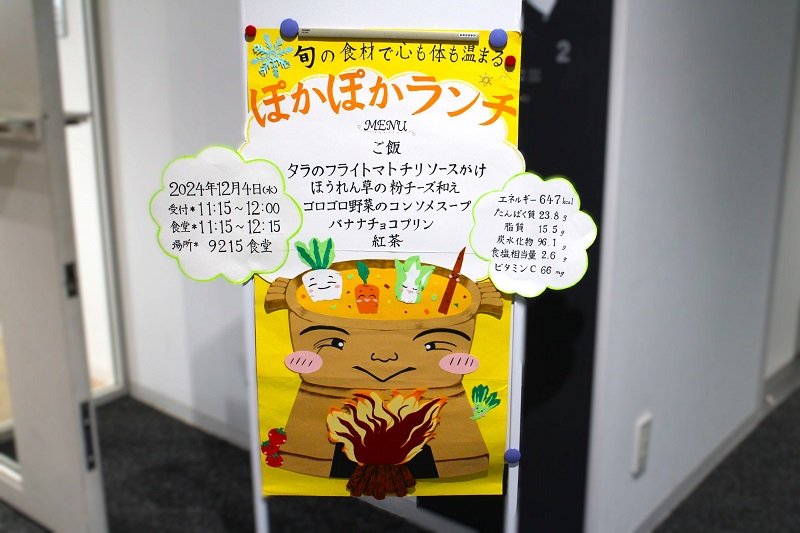 旬の食材で心も体も温まる
ぽかぽかランチ
MENU
ご飯
タラのフライトマトチリソースがけ
ほうれん草の粉チーズ和え
ゴロゴロ野菜のコンソメスープ
バナナチョコプリン
紅茶
2024年12月4日(水)
受付*11:15~12:00
食堂*11:15~12:15
場所* 9215食堂
エネルギー 647kcal
たんぱく質 23.8g
脂質 15.5g
炭水化物 96.1g
食塩相当量 2.6g
ビタミンC 66mg
2